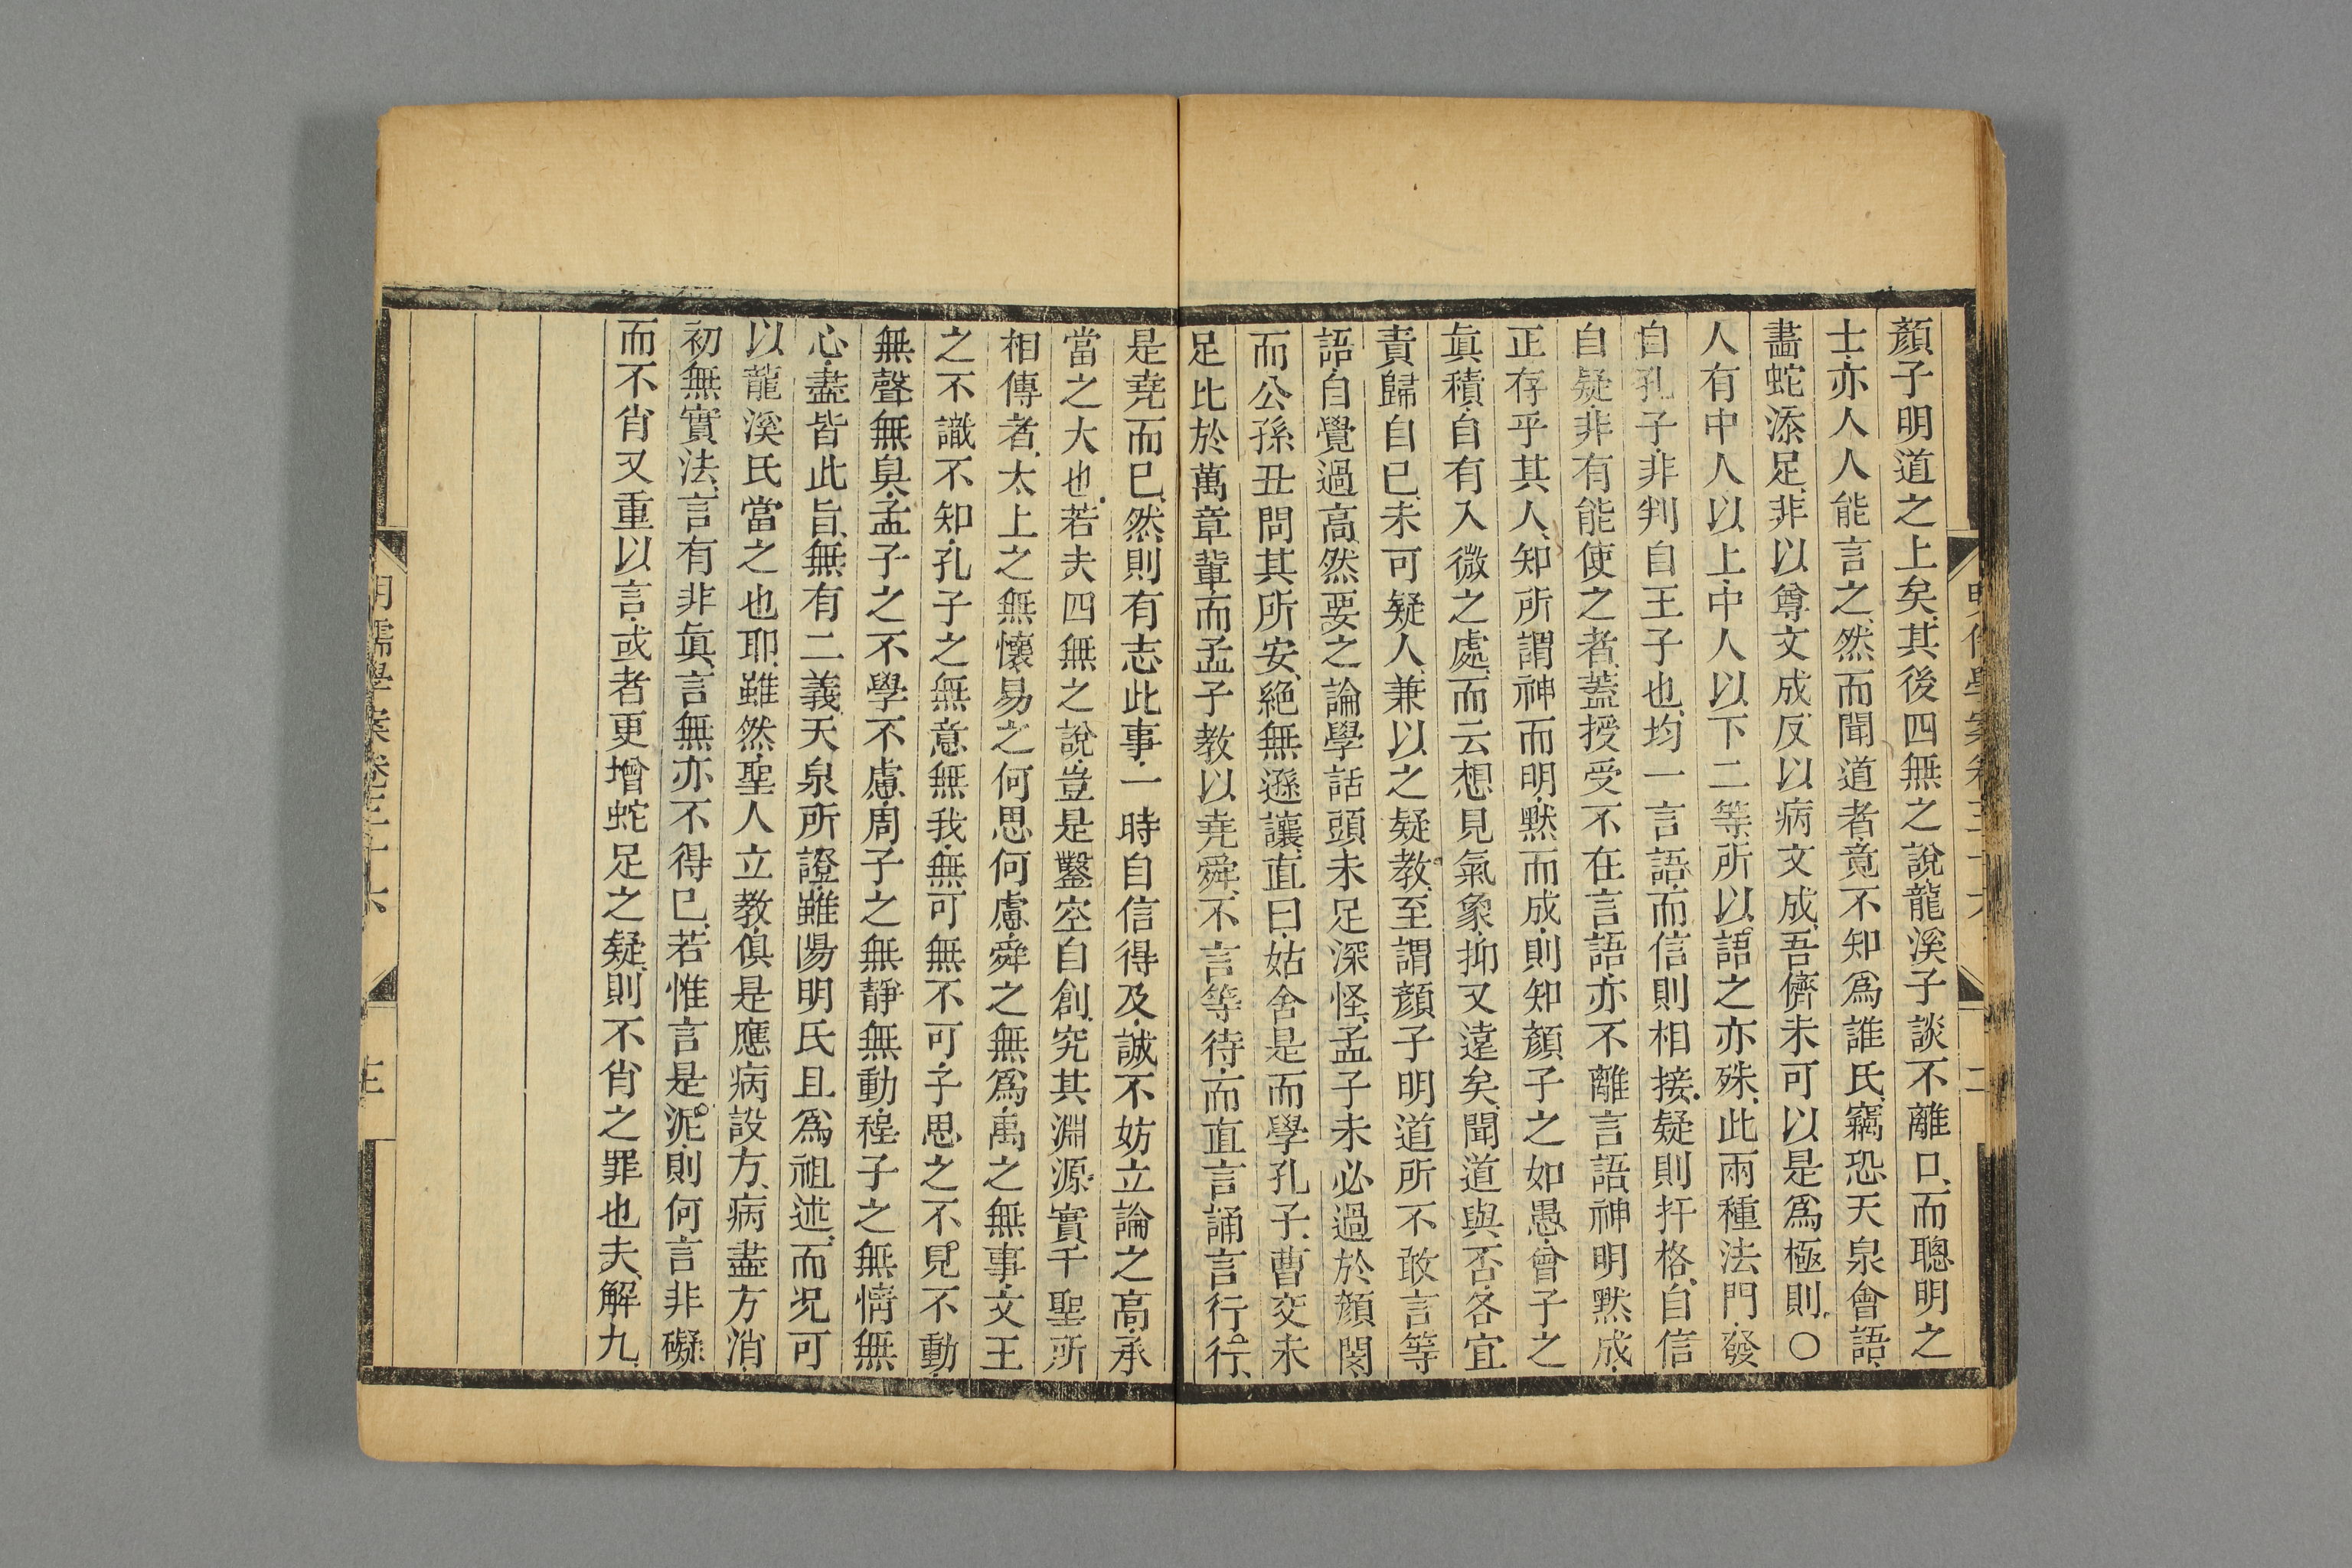 顏子明道之上矣、其後四無之說、龍溪子談不離口、而聰明之
士、亦人人能言之、然而聞道者、竟不知爲誰氏、竊恐天泉會語、
畫蛇添足、非以尊文成、反以病文成、吾儕未可以是爲極則。○
人有中人以上、中人以下二等、所以語之亦殊、此兩種法門、發
自孔子、非判自王子也、均一言語、而信則相接、疑則扞格、自信
自疑、非有能使之者、蓋授受不在言語、亦不離言語、神明默成、
正存乎其人、知所謂神而明、默而成、則知顏子之如愚、曾子之
眞積、自有入微之處、而云想見氣象、抑又遠矣、聞道與否、各宜
責歸自己、未可疑人、兼以之疑教、至謂顏子明道所不敢言等
語、自覺過高、然要之論學話頭、未足深怪、孟子未必過於顏閔、
而公孫丑問其所安、絕無遜讓、直曰、姑舍是而學孔子、曹交未
足比於萬章輩、而孟子教以堯舜、不言等待、而直言誦言行行、
是堯而已、然則有志此事、一時自信得及、誠不妨立論之高、承
當之大也、若夫四無之說、豈是鑿空自創、究其淵源、實千聖所
相傳者、太上之無懷、易之何思何慮、舜之無爲、禹之無事、文王
之不識不知、孔子之無意無我、無可無不可、子思之不見不動、
無聲無臭、孟子之不學不慮、周子之無靜無動、程子之無情無
心、盡皆此旨、無有二義、天泉所證、雖陽明氏且爲祖述、而況可
以龍溪氏當之也耶、雖然、聖人立教、俱是應病設方、病盡方消、
初無實法、言有非眞、言無亦不得已、若惟言是泥、則何言非礙、
而不肖又重以言、或者更增蛇足之疑、則不肖之罪也夫、解九、
明儒學案卷三十六